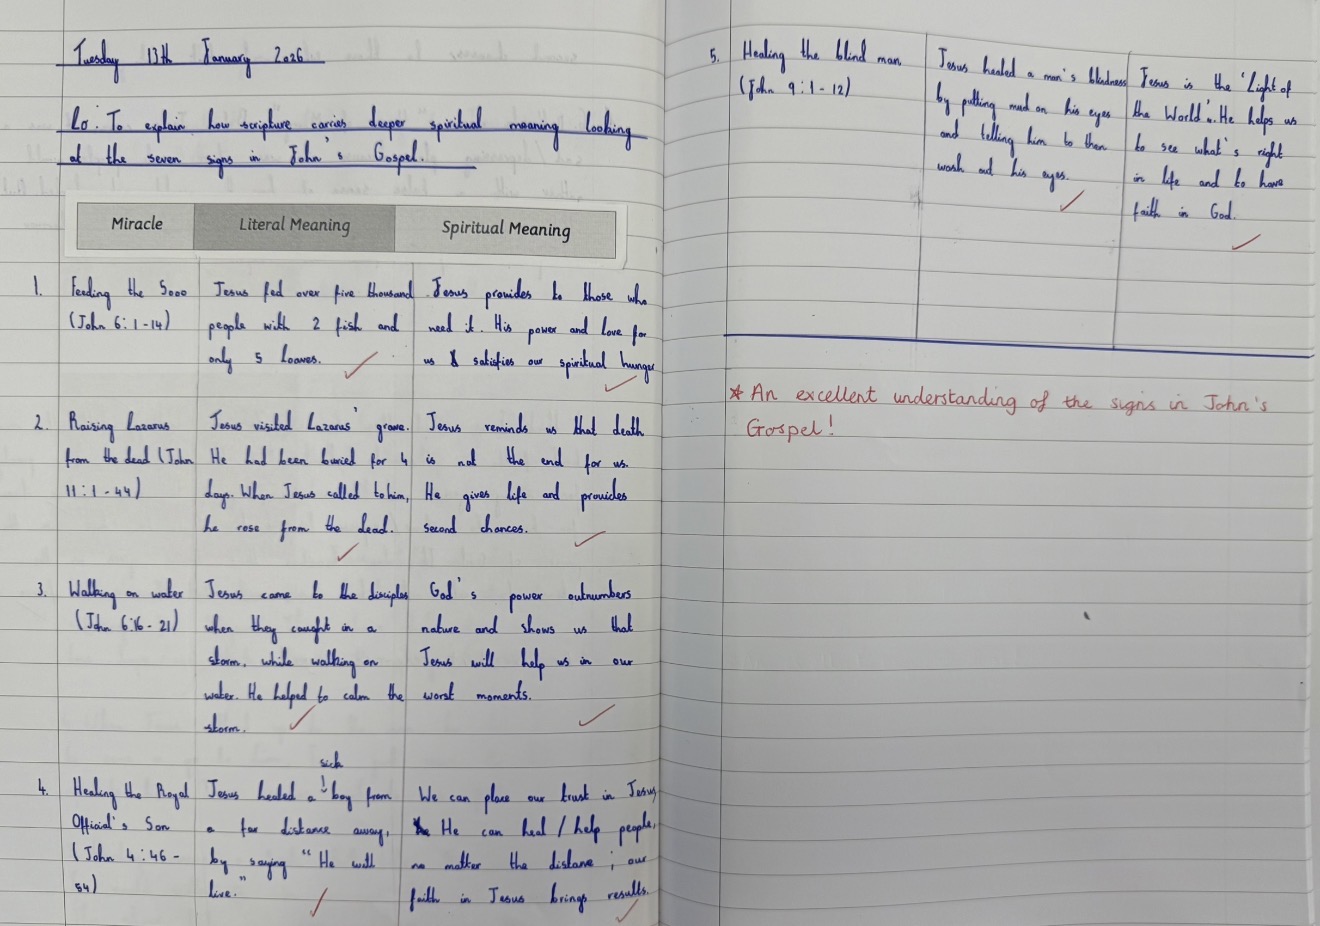 Tuesday 13th January 2026
Lo: To explain how scripture carries deeper spiritual meaning looking
at the seven signs in John's Gospel.
Miracle Literal Meaning Spiritual Meaning
1. Feeding the 5000
(John 6:1-14)
Jesus fed over five thousand
people with 2 fish and
only 5 loaves.
Jesus provides to those who
need it. His power and love for
us satisfies our spiritual hunger
2. Raising Lazarus
from the dead (John
11:1-44)
Jesus visited Lazarus' grave.
He had been buried for 4
days. When Jesus called to him,
he rose from the dead.
Jesus reminds us that death
is not the end for us.
He gives life and provides
second chances.
3. Walking on water
(John 6:16-21)
Jesus came to the disciples
when they caught in a
storm, while walking on
water. He helped to calm the
storm.
God's power outnumbers
nature and shows us that
Jesus will help us in our
worst moments.
4. Healing the Royal
Official's Son
(John 4:46-
54)
sick
Jesus healed a boy from
a far distance away,
by saying "He will
live."
We can place our trust in Jesus,
He can heal / help people,
no matter the distane; our
faith in Jesus brings results.
5. Healing the blind man
(John 9:1-12)
Jesus healed a man's blindness
by putting mud on his eyes
and telling him to then
wash out his eyes.
Jesus is the 'Light of
the World'. He helps us
to see what's right
in life and to have
faith in God.
* An excellent understanding of the signs in John's
Gospel!